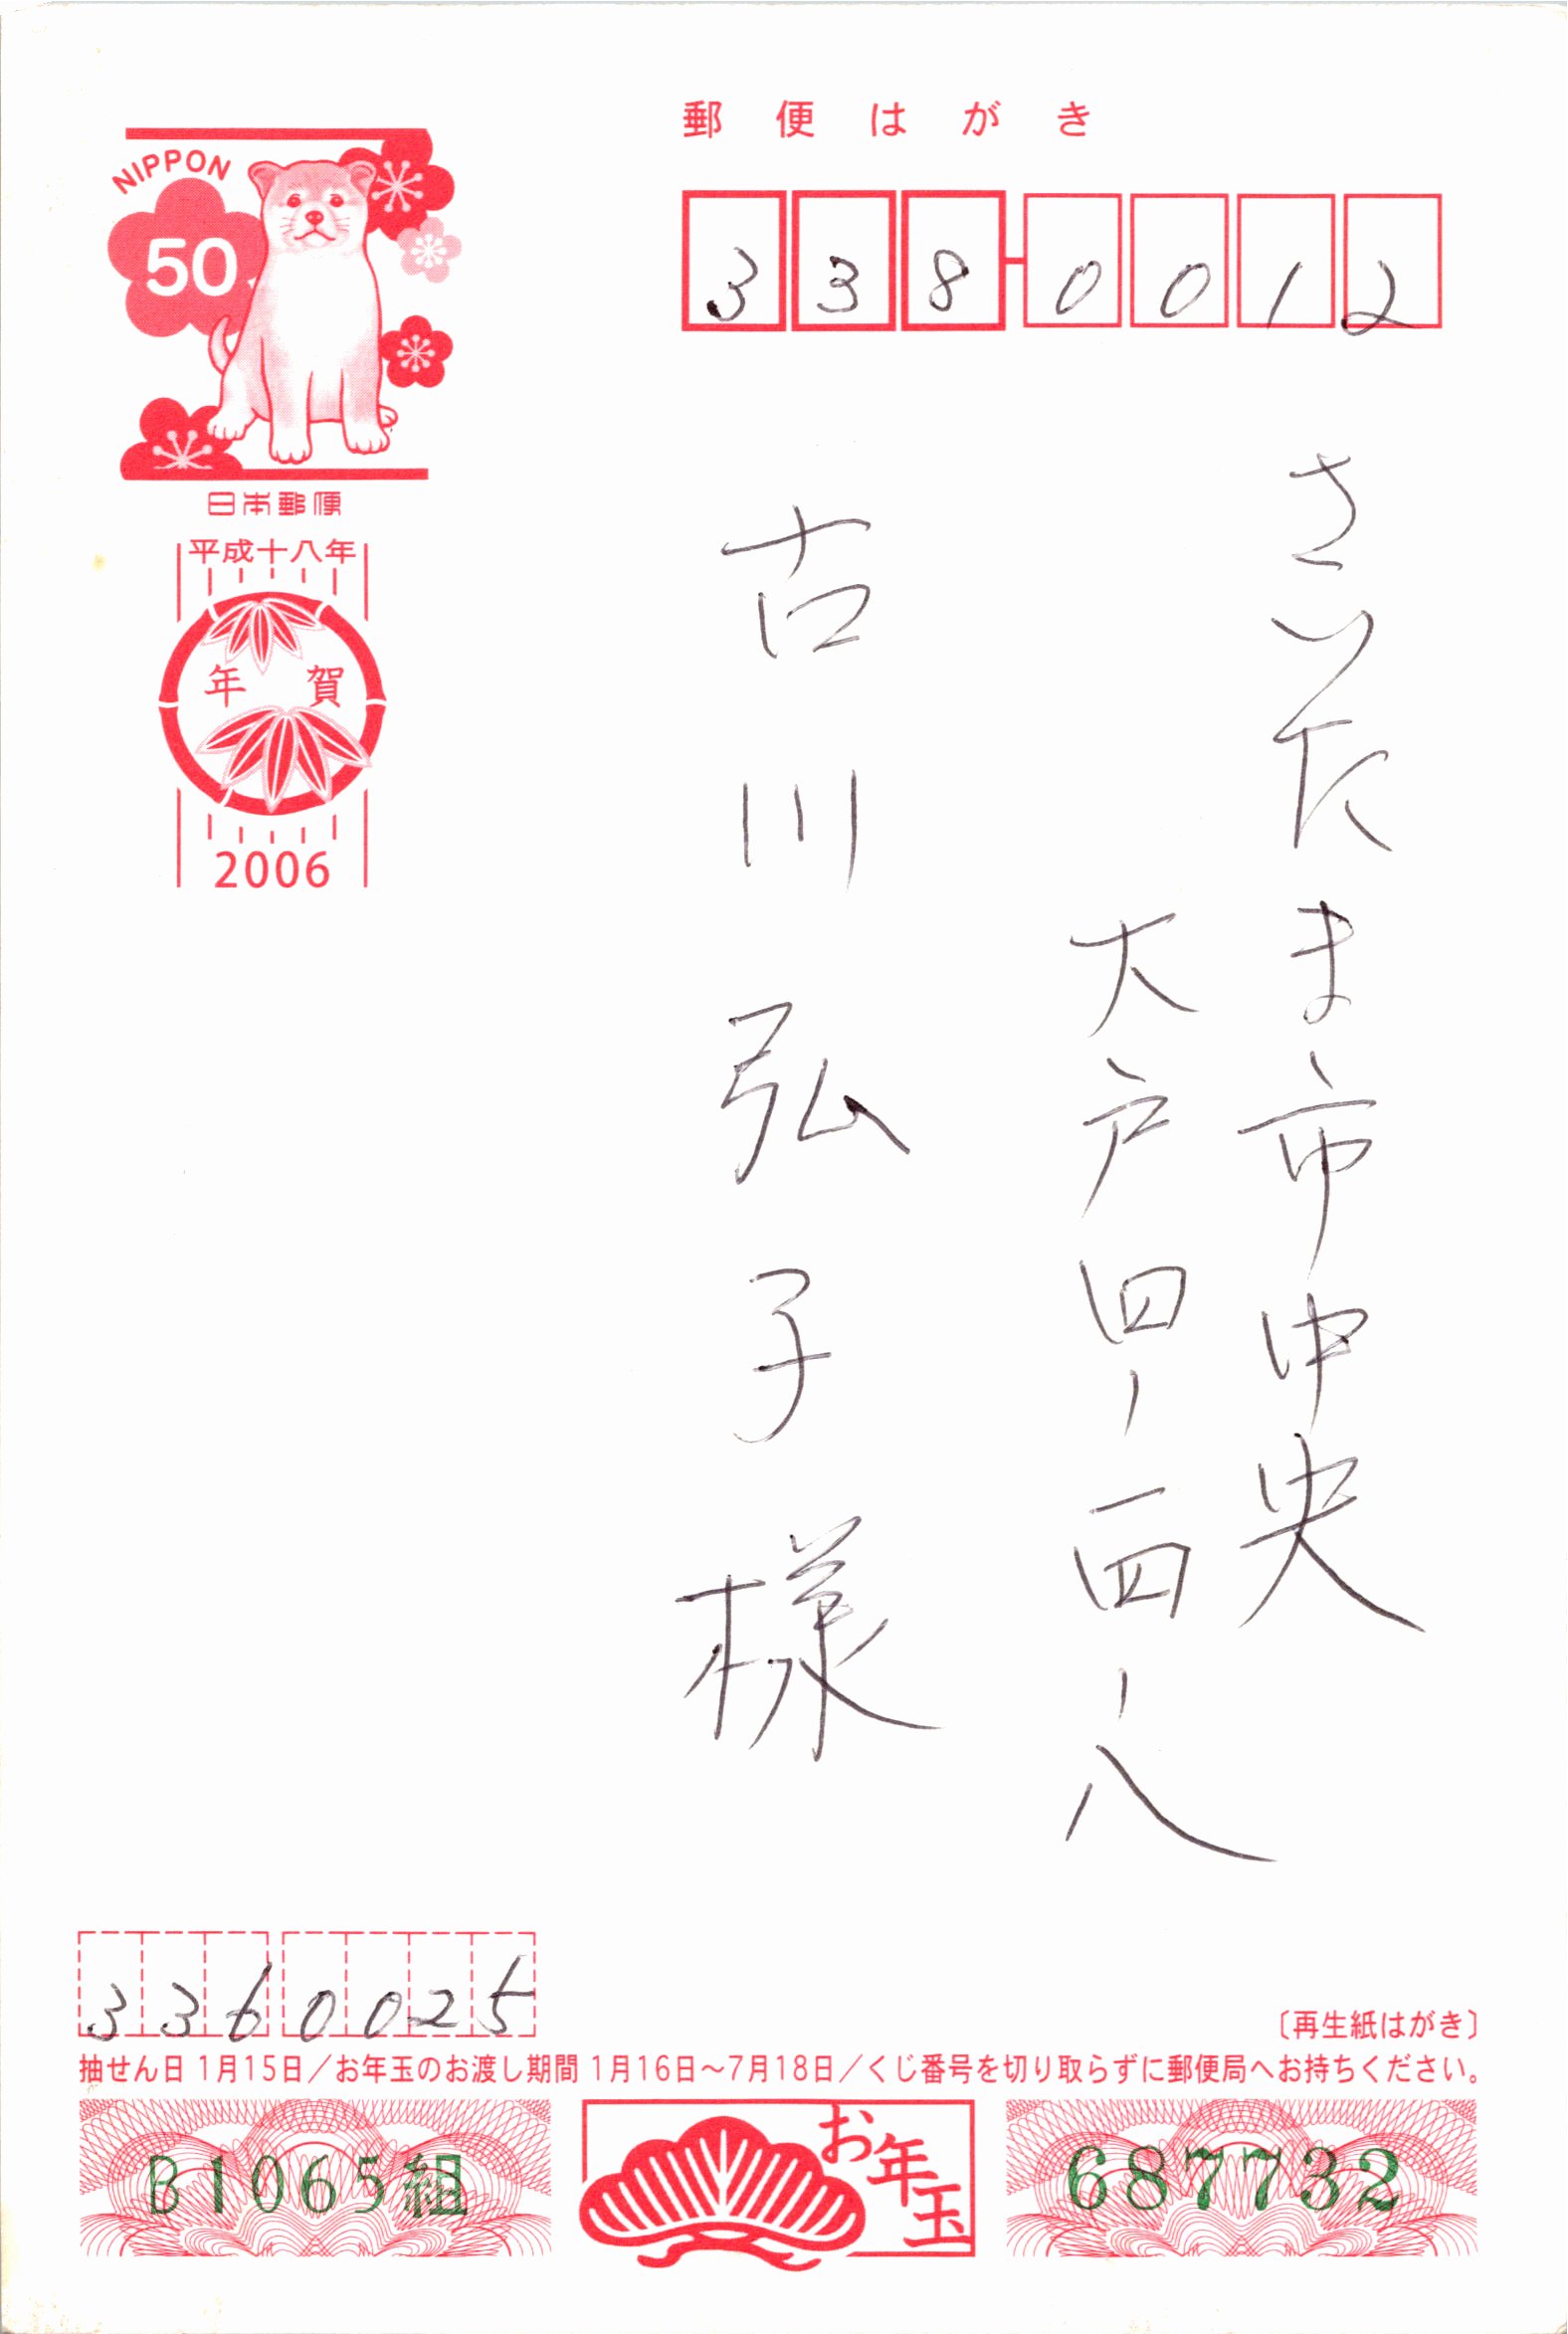 郵便はがき
338-0012
さいたま市中央
大戸四-一四-八
古川弘子様
NIPPON
50
日本郵便
平成十八年
年賀
2006
3360025
〔再生紙はがき〕
抽せん日1月15日／お年玉のお渡し期間1月16日～7月18日／くじ番号を切り取らずに郵便局へお持ちください。
B1065組
お年玉
687732